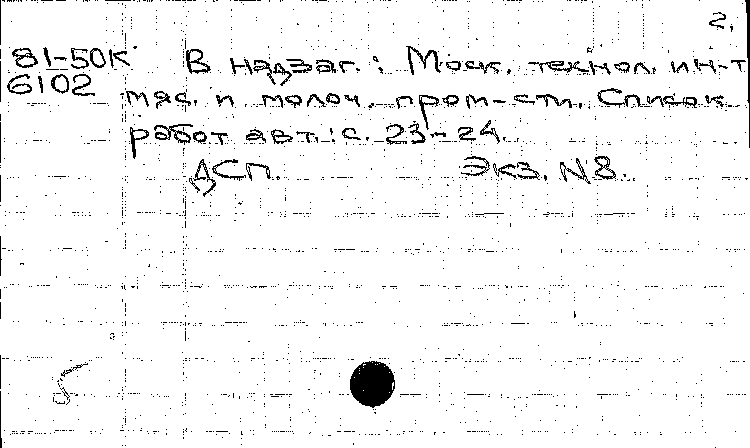 2.
81-50К В надзаг.: Моск. технол. ин-т
6102 мяс. и молоч. пром-сти. Список
работ авт.: с. 23-24.
ДСП. Экз. N8.